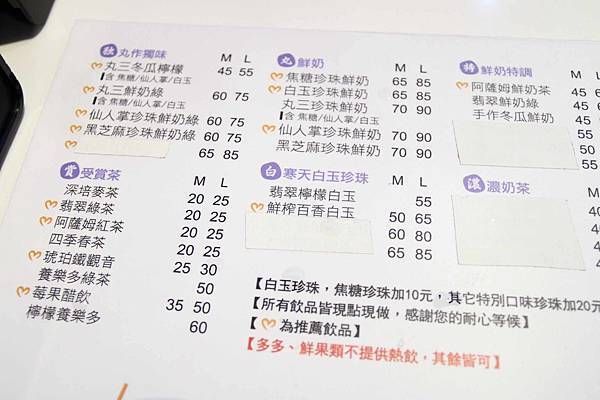 独 丸作獨味 M L
丸三冬瓜檸檬 45 55
含 焦糖/仙人掌/白玉
丸三鮮奶綠 60 75
含 焦糖/仙人掌/白玉
仙人掌珍珠鮮奶綠 60 75
黑芝麻珍珠鮮奶綠 60 75
65 85
賞 受賞茶 M L
深培麥茶 20 25
翡翠綠茶 20 25
阿薩姆紅茶 20 25
四季春茶 20 25
琥珀鐵觀音 25 30
養樂多綠茶 50
莓果醋飲 35 50
檸檬養樂多 60
丸 鮮奶 M L
焦糖珍珠鮮奶 65 85
白玉珍珠鮮奶 65 85
丸三珍珠鮮奶 70 90
含 焦糖/仙人掌/白玉
仙人掌珍珠鮮奶 70 90
黑芝麻珍珠鮮奶 70 90
白 寒天白玉珍珠 M L
翡翠檸檬白玉 55
鮮榨百香白玉 50 65
60 80
65 85
特 鮮奶特調 M
阿薩姆鮮奶茶 45
翡翠鮮奶綠 45
手作冬瓜鮮奶 45
55
55
濃 濃奶茶 M
40
40
40
45
【白玉珍珠，焦糖珍珠加10元，其它特別口味珍珠加20元
【所有飲品皆現點現做，感謝您的耐心等候】
【 為推薦飲品】
【多多、鮮果類不提供熱飲，其餘皆可】